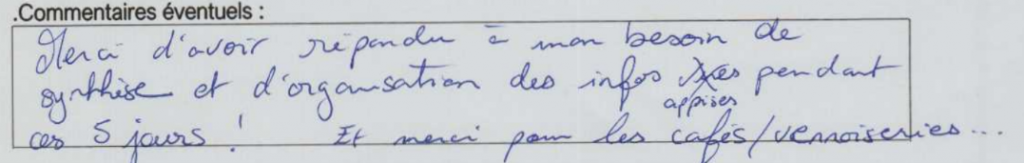 .Commentaires éventuels :
Merci d'avoir répondu à mon besoin de
synthèse et d'organisation des infos pendant
appises
ces 5 jours ! Et merci pour les cafés/vennoiseries...